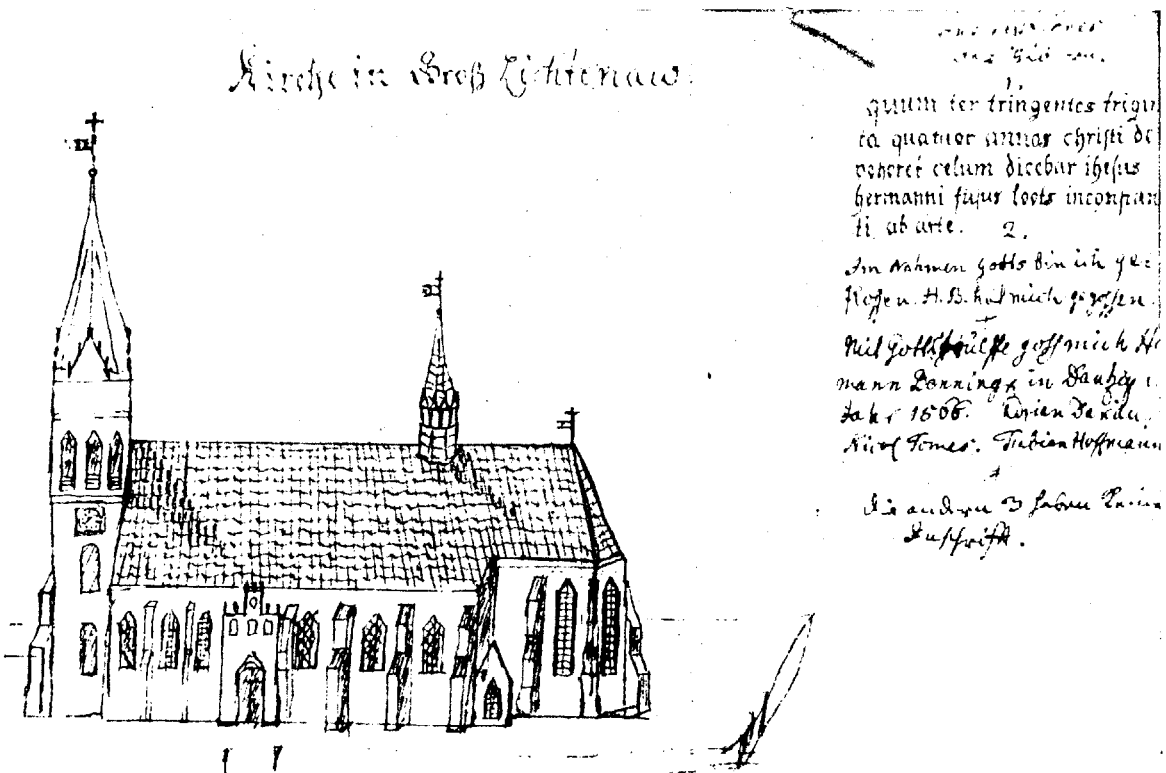 Kirche in Groß Lichtenaw.
1.
quum ter tringentes trigin
ta quatuor annas christi de
celum dicebar ihesus
hermanni fusus loets inconpara
ti ab arte. 2.
Im Nahmen Gotts bin ich ge=
H. B. hat mich gegossen.
Mit Gotts hülffe goss mich He
mann Benningk in Dantzig i
Jahr 1606.
Nickel Tomes. Fabian Hoffmann
4
Die andern 3 haben keine
Inschrift.